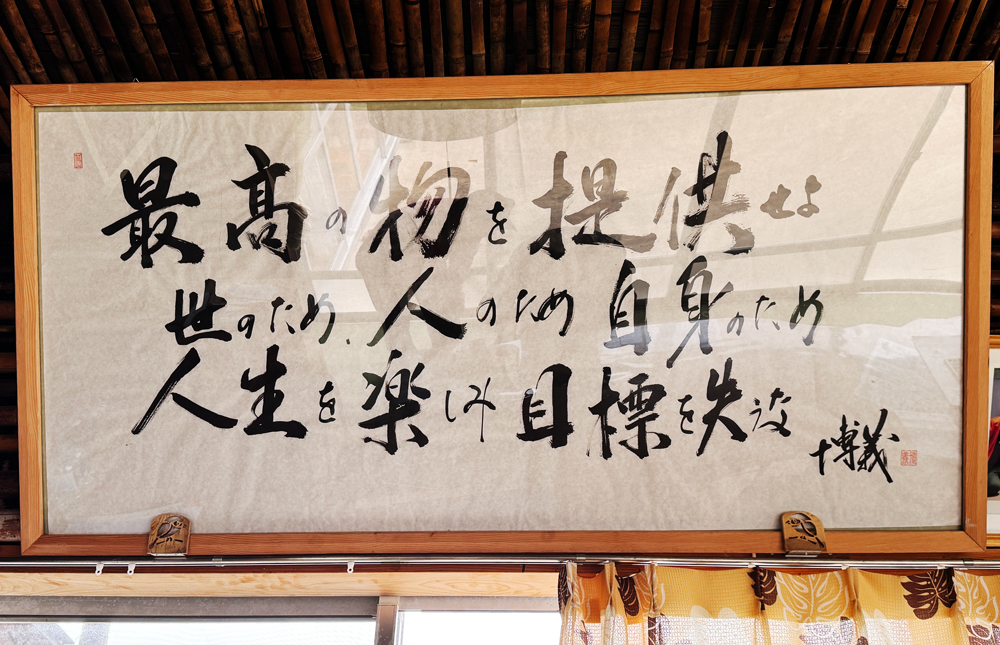 最高の物を提供せよ
世のため、人のため自身のため
人生を楽しみ目標を失うな
博義